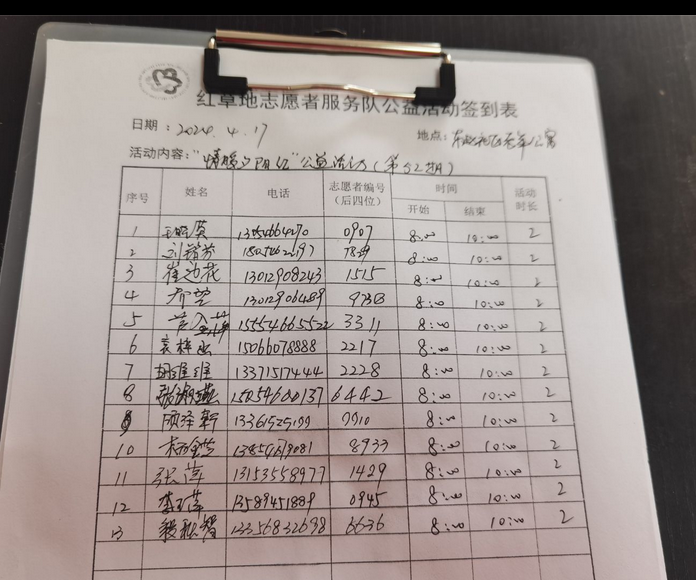 红草地志愿者服务队公益活动签到表
日期：2024.4.17 地点：
活动内容："情暖夕阳红"公益活动（第52期）
序号 姓名 电话 志愿者编号（后四位） 时间 活动时长
开始 结束
1 0907 8:00 10:00 2
2 8:00 10:00 2
3 崔池花 13012908243 1515 8:00 10:00 2
4 13012906489 8:00 10:00 2
5 15554665522 3311 8:00 10:00 2
6 袁梓 15066078888 2217 8:00 10:00 2
7 胡维维 13371517444 2228 8:00 10:00 2
8 15054600137 6442 8:00 10:00 2
9 顾泽新 8:00 10:00 2
10 8933 8:00 10:00 2
11 张萍 13153558977 1429 8:00 10:00 2
12 李玉萍 13589451889 0945 8:00 10:00 2
13 13356832698 6636 8:00 10:00 2